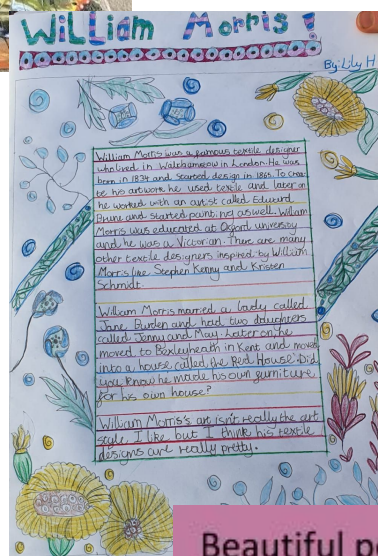 William Morris!
By: Lily H
William Morris was a famous textile designer
who lived in Walthamstow in London. He was
born in 1834 and started design in 1861. To crea-
te his artwork he used textile and later on
he worked with an artist called Edward
and started painting as well. William
Morris was educated at Oxford university
and he was a Victorian. There are many
other textile designers inspired by William
Morris like Stephen Kenny and Kristen
Schmidt.
William Morris married a lady called
Jane Burden and had two daughters
called Jenny and May. Later on, he
moved to Bexleyheath in Kent and moved
into a house called the Red House. Did
you know he made his own furniture
for his own house?
William Morris's art isn't really the art
I like but I think his textile
designs are really pretty.
Beautiful